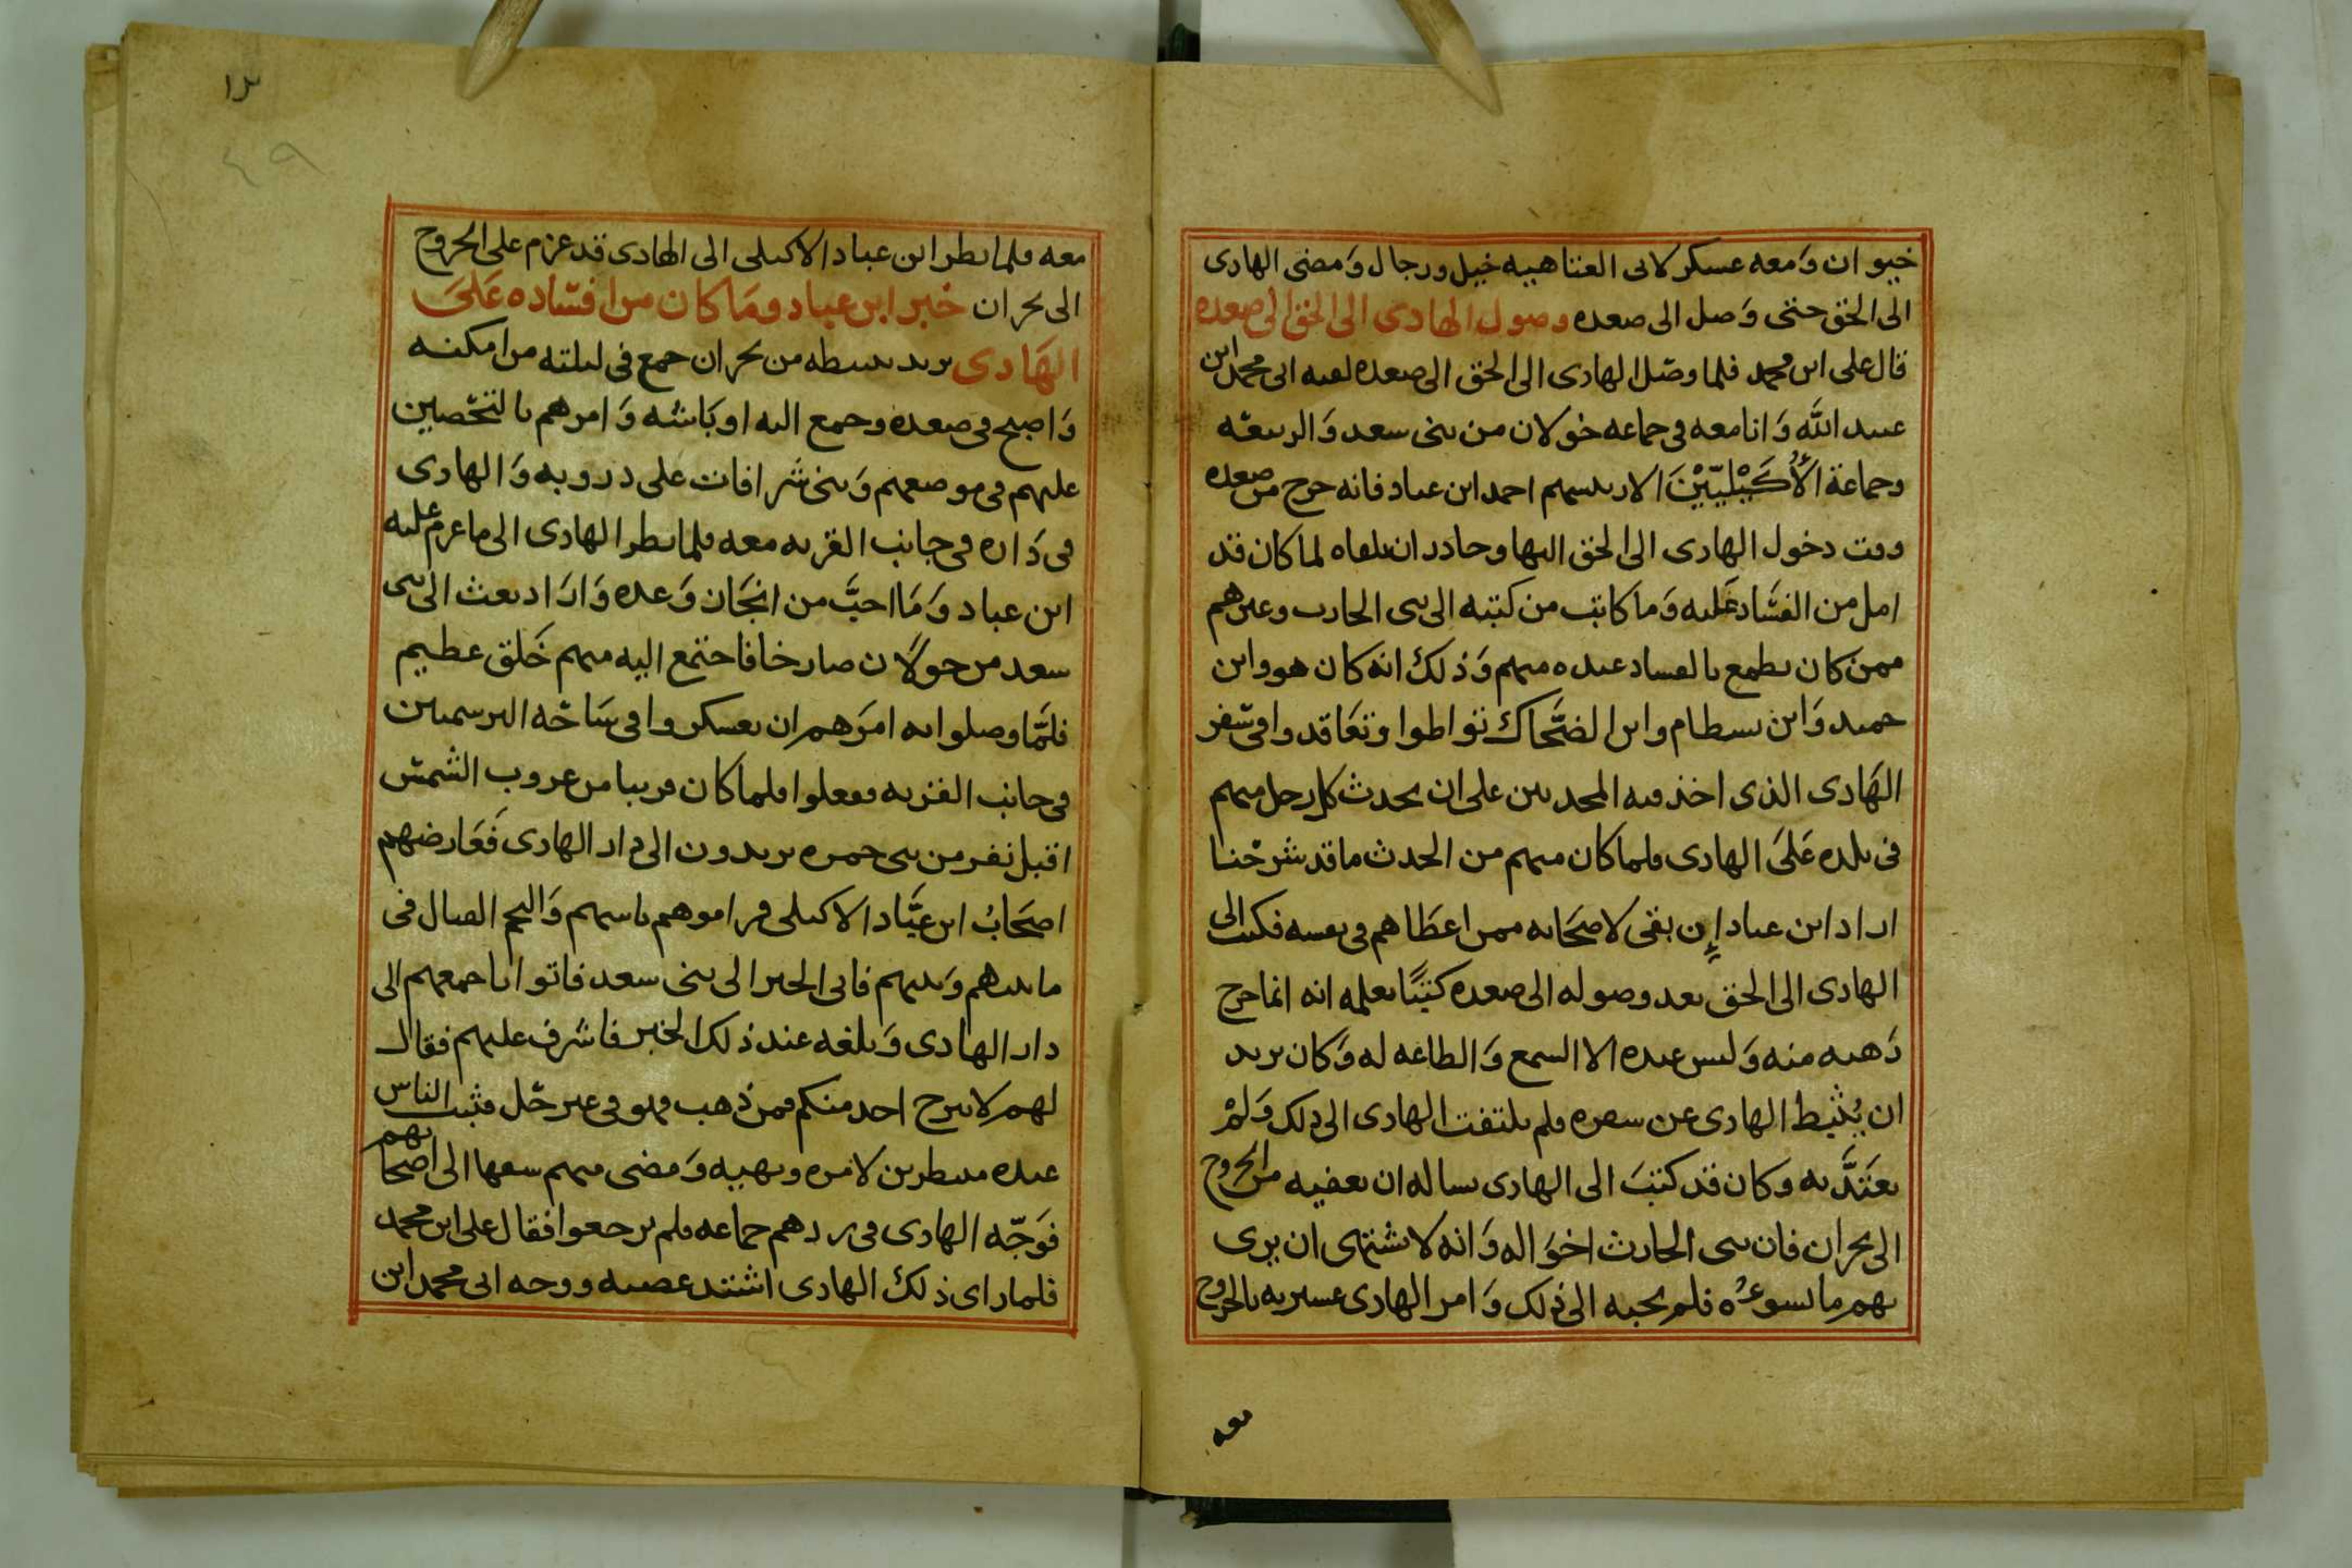 خيوان وَمعه عسكر لابى العتاهيه خيل ورجال وَمضى الهادى
الى الحق حتى وَصل الى صعده وصول الهادى الى الحق الى صعده
قال على ابن محمد فلما وصّل الهادى الى الحق الى صعده لقيه ابى محمد ابن
عبيد الله وَانا معه فى جماعه خولان من بنى سعد وَالربيعّه
وجماعة الأُكَيْلِيّيْنَ الا رييسهم احمد ابن عباد فانه خرج من صعده
وقت دخول الهادى الى الحق اليها وحاذر ان يلقاه لما كان قد
امل من الفسَّاد عَليه وَما كاتب من كتبه الى بنى الحارث وغيرهم
ممن كان يطمع بالفساد عنده منهم وَذلك انه كان هو وابن
حميد وَابن بسطام وابن الضحَّاك تواطوا وتعَاقدوا فى سَفر
الهَادى الذى اخذ فيه المحدثين على ان يحدث كل رجل منهم
فى بلده عَلىَ الهادى فلما كان منهم من الحدث ما قد شرحْنا
اراد ابن عباد إن بقى لاصحَابه ممن اعطَاهم فى نفسه فكتب الى
الهادى الى الحق بعد وصوله الى صعده كتبًا يعلمه انه انما خرج
رَهبه منه وَليس عنده الا السمع وَالطاعه له وَكان يريد
ان يُثَبط الهادى عن سفره فلم يلتفت الهادى الى ذلك وَلمْ
يعَتَدَّ به وكان قد كتبَ الى الهادى يساله ان يعفيه من الخروج
الى نجران فان بنى الحارث اخوَاله وَانه لا يشتهى ان يرى
بهم ما يسوءُه فلم يجبه الى ذلك وَامر الهادى عسيريه بالخروج
معه
١٣
٤٩
معه فلما نظر ابن عباد الاكيلى الى الهادى قد عزم على الخروج
الى نجران خبر ابن عباد ومَا كان من افسَّاده عَلىَ
الهَادى يريد يبسطه من نجران جمع فى ليلته من امكنه
وَاصبح فى صعده وجمع اليه اوبَاشه وَامرهم بالتحْصين
عليهم فى موضعهم وَبنى شرَافات على دروبه وَالهادى
فى دَاره فى جانب القريه معه فلما نظر الهادى الى ما عزم عليه
ابن عباد وَمَا احبَّ من انجَان وَعده وَارَاد بعث الى بنى
سعد من خولَان صارخا فاجتمع اليه منهم خَلق عظيم
فلمَّا وصلوا به امرَهم ان يعسكروا فى سَاحّه البرسميين
فى جانب القريه ففعلوا فلما كان قريبا من غروب الشمسّ
اقبل نفر من بنى حمره يريدون الى دار الهادى فَعَارضهم
اصحَابُ ابن عبَّاد الاكيلى فراموهم باسهم وَالتحم القتال فى
ما بينهم وَبينهم فاتى الخبر الى بنى سعد فاتوا باجمعهم الى
دار الهادى وَبلغه عند ذلك الخبر فاشرف عليهم فقال
لهم لا يبرح احد منكم فمن ذهب فهو فى غير حّل فثبت الناس
عنده منتظرين لامره ونهييه وَمضى منهم سفها الى اصحابهم
فوَجّه الهادى فى ردهم جماعه فلم يرجعوا فقال على ابن محمد
فلما راى ذلك الهادى اشتد غضبه ووجه ابى محمد ابن